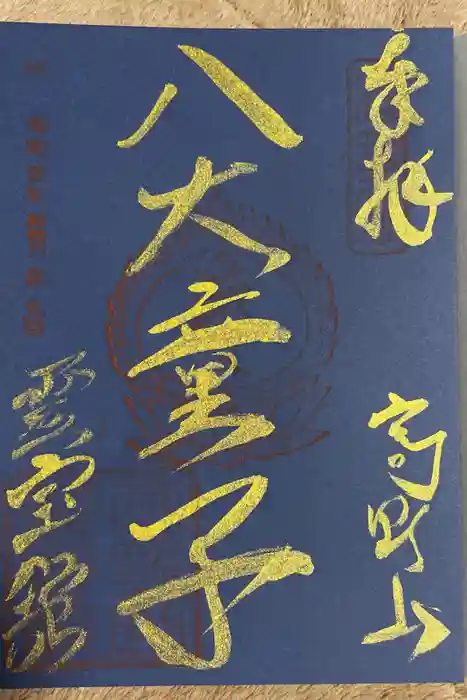 奉拝
高野山
八大童子
霊宝館